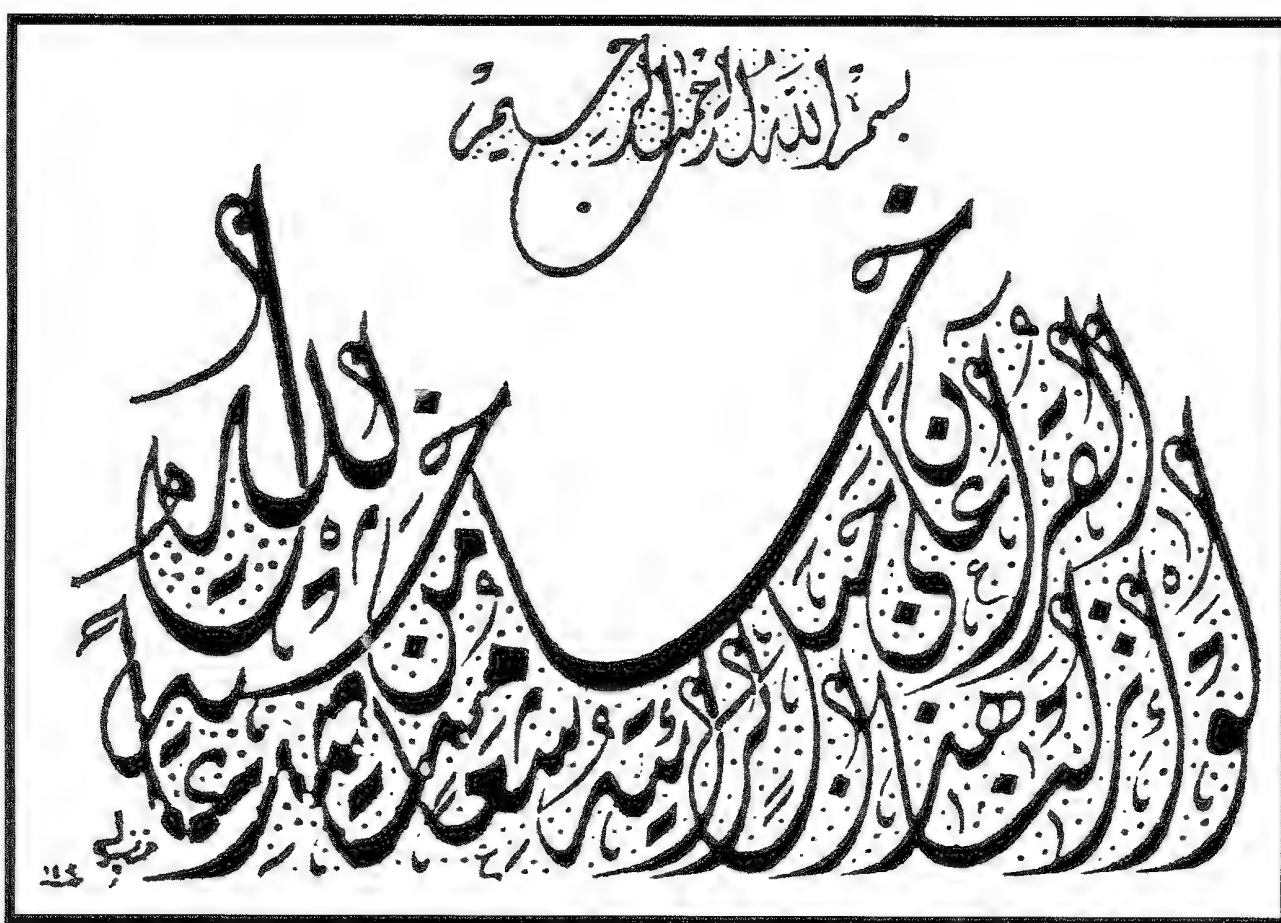 بسم الله الرحمن الرحيم
لو أنزلنا هذا القرآن على جبل لرأيته خاشعا متصدعا من خشية الله